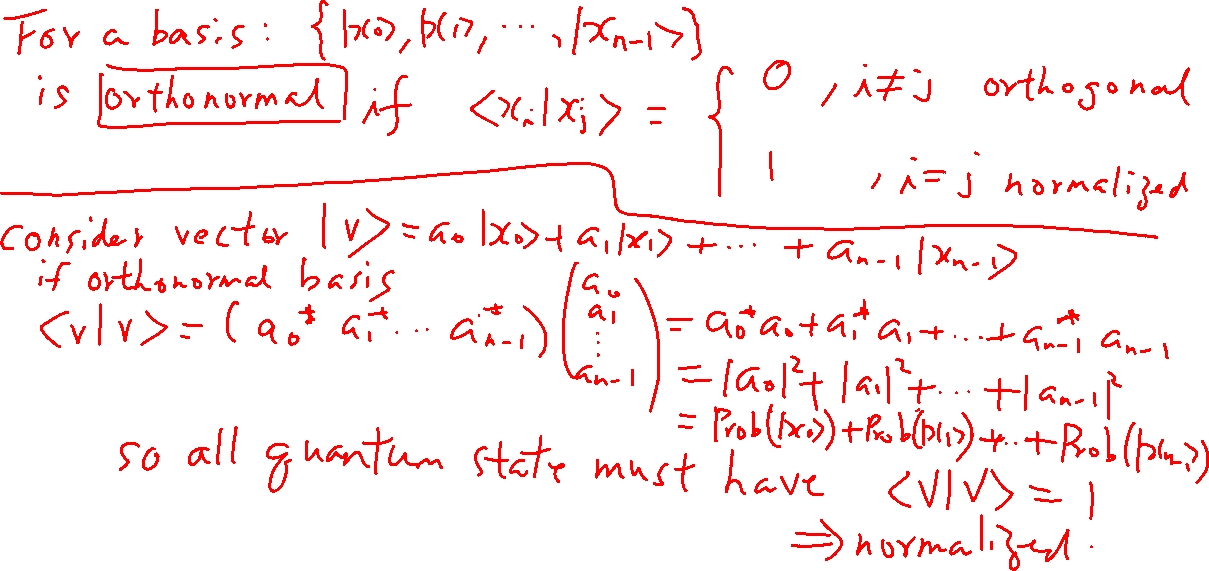 For a basis: {|x₀>, |x₁>, ⋯, |xₙ₋₁>}
is orthonormal if <xᵢ|xⱼ> = { 0 , i≠j orthogonal
1 , i=j normalized
consider vector |v> = a₀|x₀> + a₁|x₁> + ⋯ + aₙ₋₁|xₙ₋₁>
if orthonormal basis
<v|v> = (a₀* a₁* ⋯ aₙ₋₁*) (a₀ a₁ ⋮ aₙ₋₁) = a₀*a₀ + a₁*a₁ + ⋯ + aₙ₋₁* aₙ₋₁
= |a₀|² + |a₁|² + ⋯ + |aₙ₋₁|²
= Prob(|x₀>) + Prob(|x₁>) + ⋯ + Prob(|xₙ₋₁>)
so all quantum state must have <v|v> = 1
⇒ normalized.